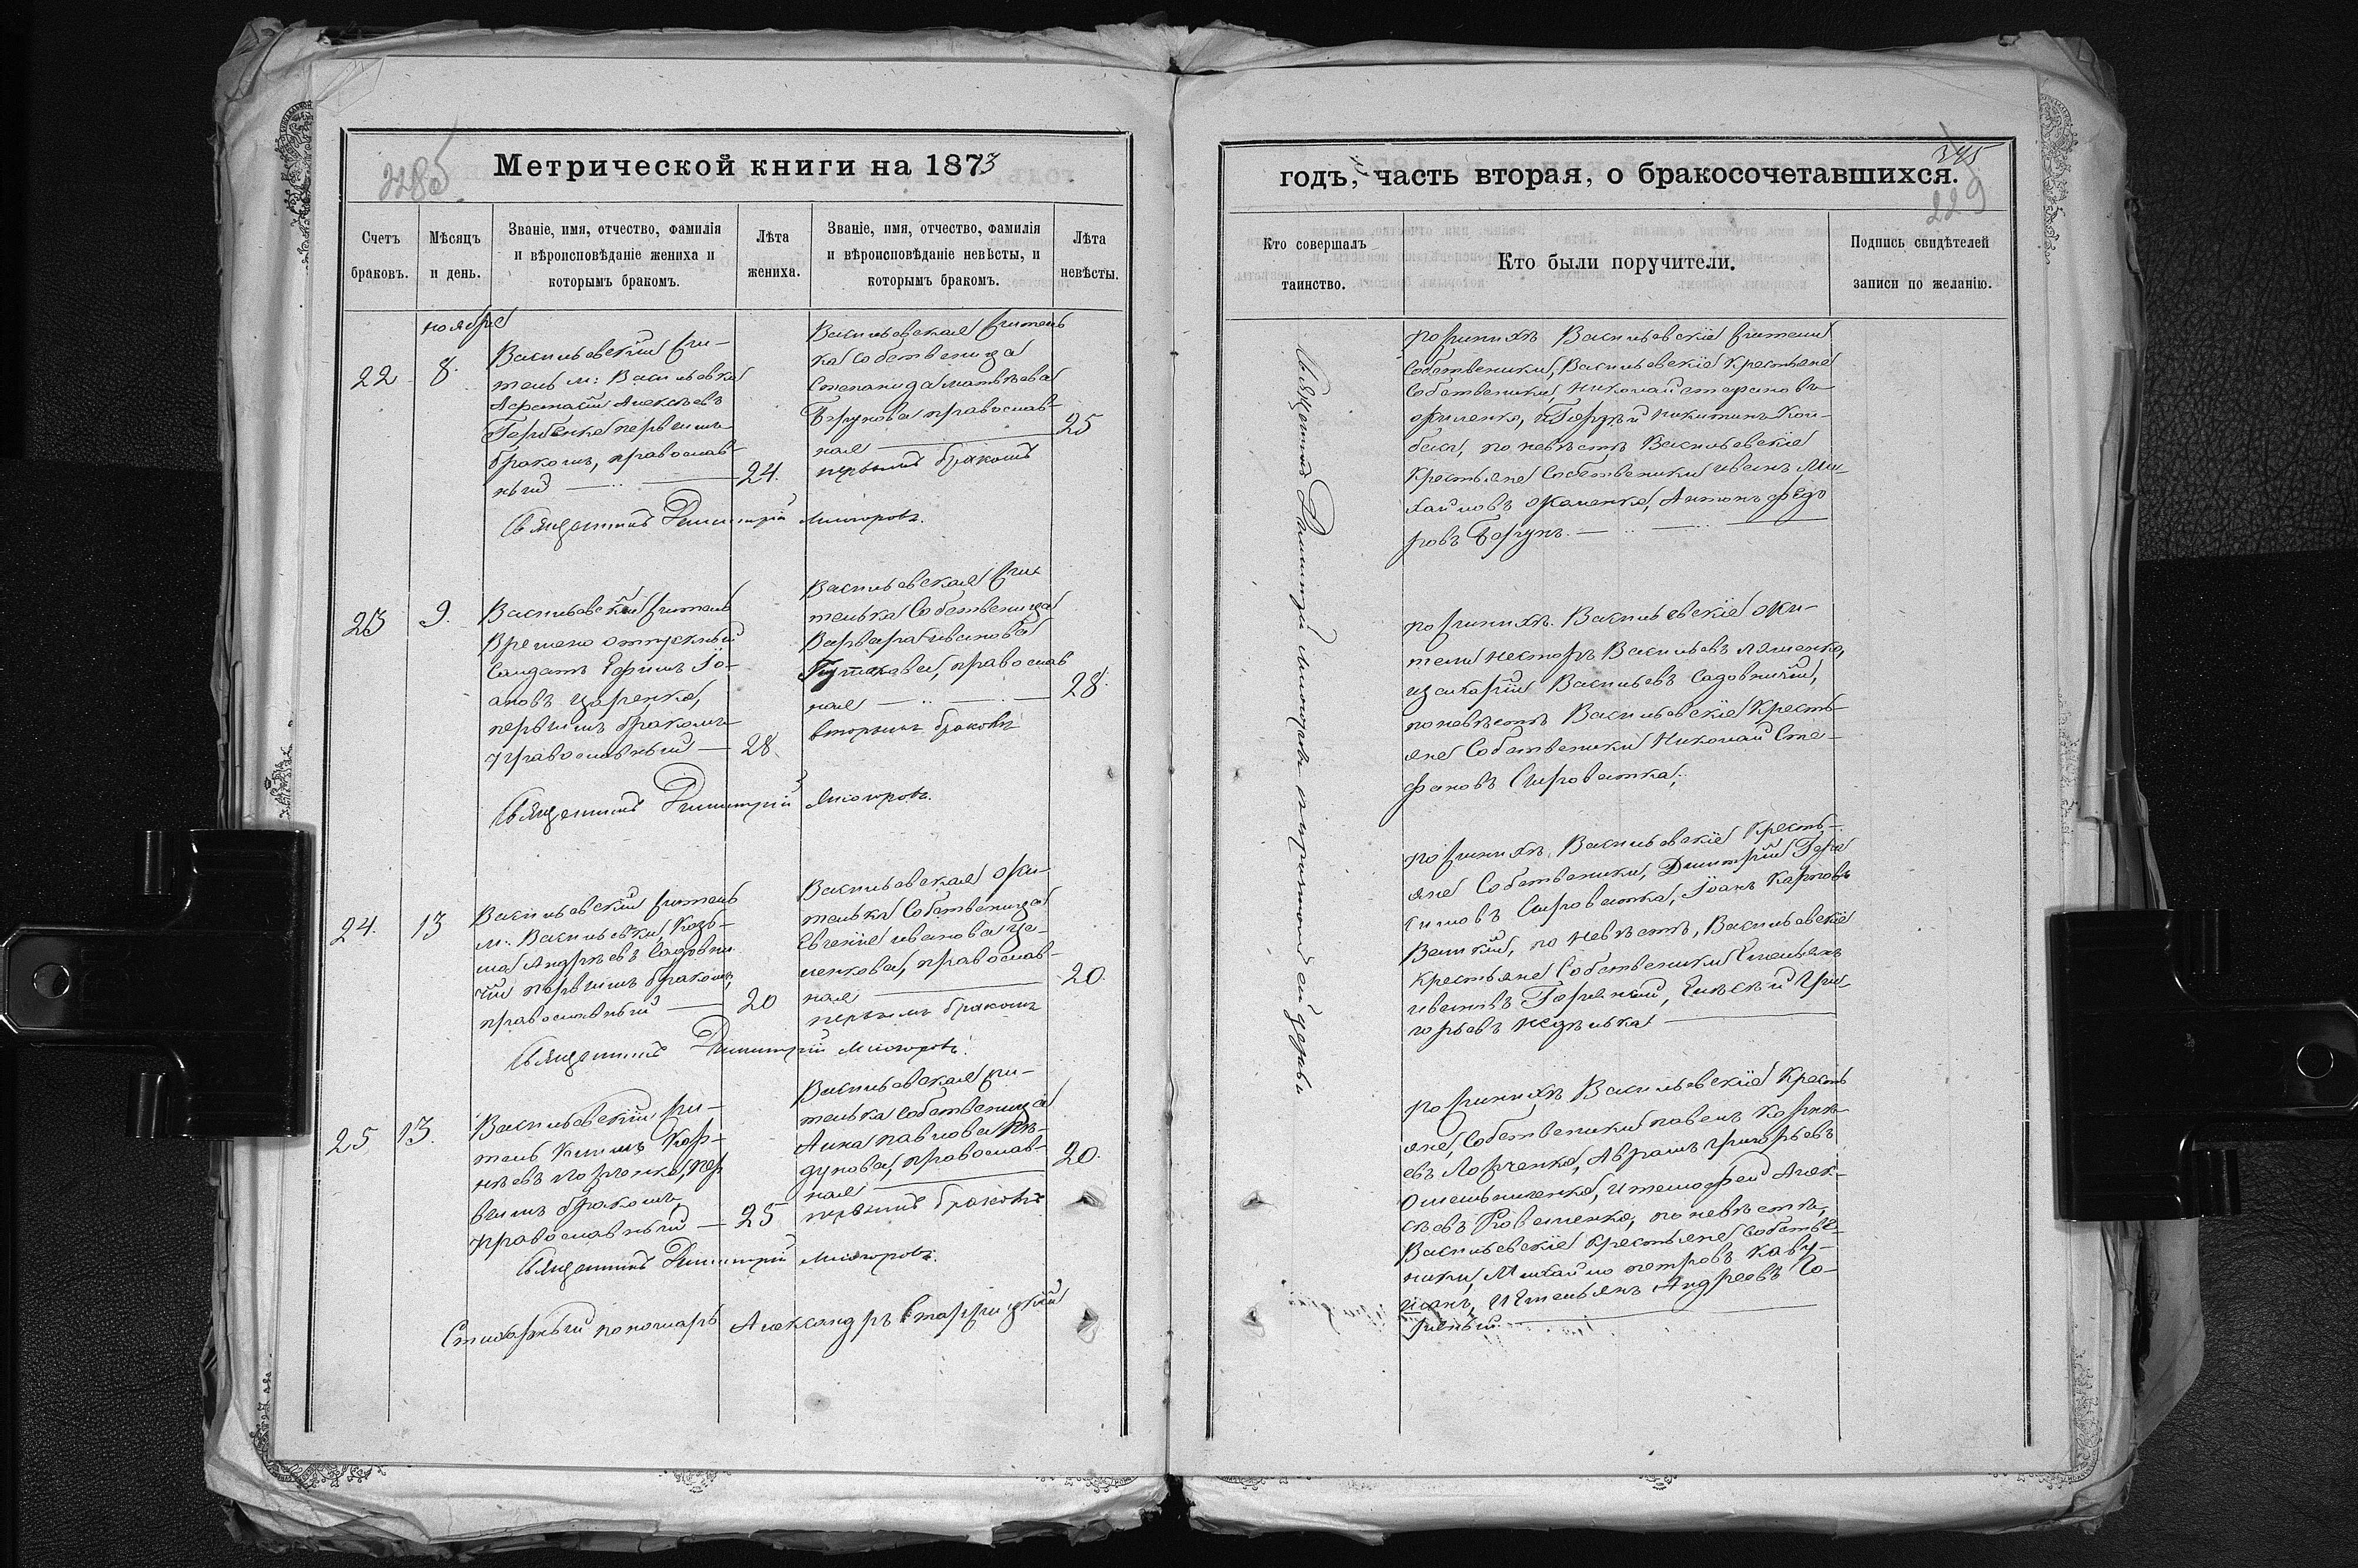 Метрической книги на 1873
Счетъ браковъ.
Мѣсяцъ и день.
Званіе, имя, отчество, фамилія
и вѣроисповѣданіе жениха и
которымъ бракомъ.
Лѣта
жениха.
Званіе, имя, отчество, фамилія
и вѣроисповѣданіе невѣсты, и
которымъ бракомъ.
Лѣта
невѣсты.
ноября
22
8.
Васильевскій жи-
тель м: Васильевки
Афанасій Алексѣевъ
первымъ
бракомъ, православ-
ный
24.
Васильевская житель
ка Собственица
Степанида Матвѣева
православ-
ная
первымъ бракомъ
25
Священникъ Димитрій
23
9.
Васильевскій житель
Времено отпускный
Салдатъ Ефимъ Іо-
ановъ Царенко,
первымъ бракомъ
православный
28.
Васильевская жи-
телька Собственица
Варвара Иванова
православ
ная
вторымъ бракомъ
28.
Священникъ Димитрій
24.
13
Васильевскій житель
м. Васильевки, Козь-
ма Андрѣевъ Садовни
чій первымъ бракомъ,
православный
20
Васильевская жи-
телька Собственица
Евгенія Иванова
православ-
ная
первымъ бракомъ
20.
Священникъ Димитрій
25.
13.
Васильевскій жи-
тель Климъ Кор-
нѣевъ Лобченко, пер
вымъ бракомъ,
православный
25
Васильевская жи-
телька Собственица
Анна Павлова
православ-
ная
первымъ бракомъ
20.
Священникъ Димитрій
Стихарный пономарь Александръ
годъ, часть вторая, о бракосочетавшихся.
345
229
Кто совершалъ
таинство.
Кто были поручители.
Подпись свидѣтелей
записи по желанію.
Священникъ Димитрій
по женихѣ Васильевскіе жители
Собственики, Васильевскіе Крестьяне
Собственики, Николай Стефановъ
Никитинъ
по невѣстѣ Васильевскіе
Крестьяне Собственики Иванъ Ми-
хайловъ Антонъ Федо
ровъ Борунъ
по женихѣ Васильевскіе жи-
тели Несторъ Васильевъ
Васильевъ Садовничій,
по невѣстѣ Васильевскіе Кресть-
яне Собственики Николай Сте-
фановъ Сыроватка,
по женихѣ, Васильевскіе Кресть-
яне Собственики, Димитрій Гера
симовъ Сыроватка, Іоанъ Карповъ
по невѣстѣ, Васильевскіе
Крестьяне Собственики Емельянъ
Ивановъ Елисей Гри
горьевъ Недѣлька
по женихѣ Васильевскіе Кресть
яне, Собственики Павелъ Корнѣ-
евъ Лобченко, Аврамъ Григорьевъ
Омельниченко, и Тимофей Алек-
сѣевъ по невѣстѣ,
Васильевскіе Крестьяне Собстве-
ники, Михайло Петровъ
и Емельянъ Андреевъ